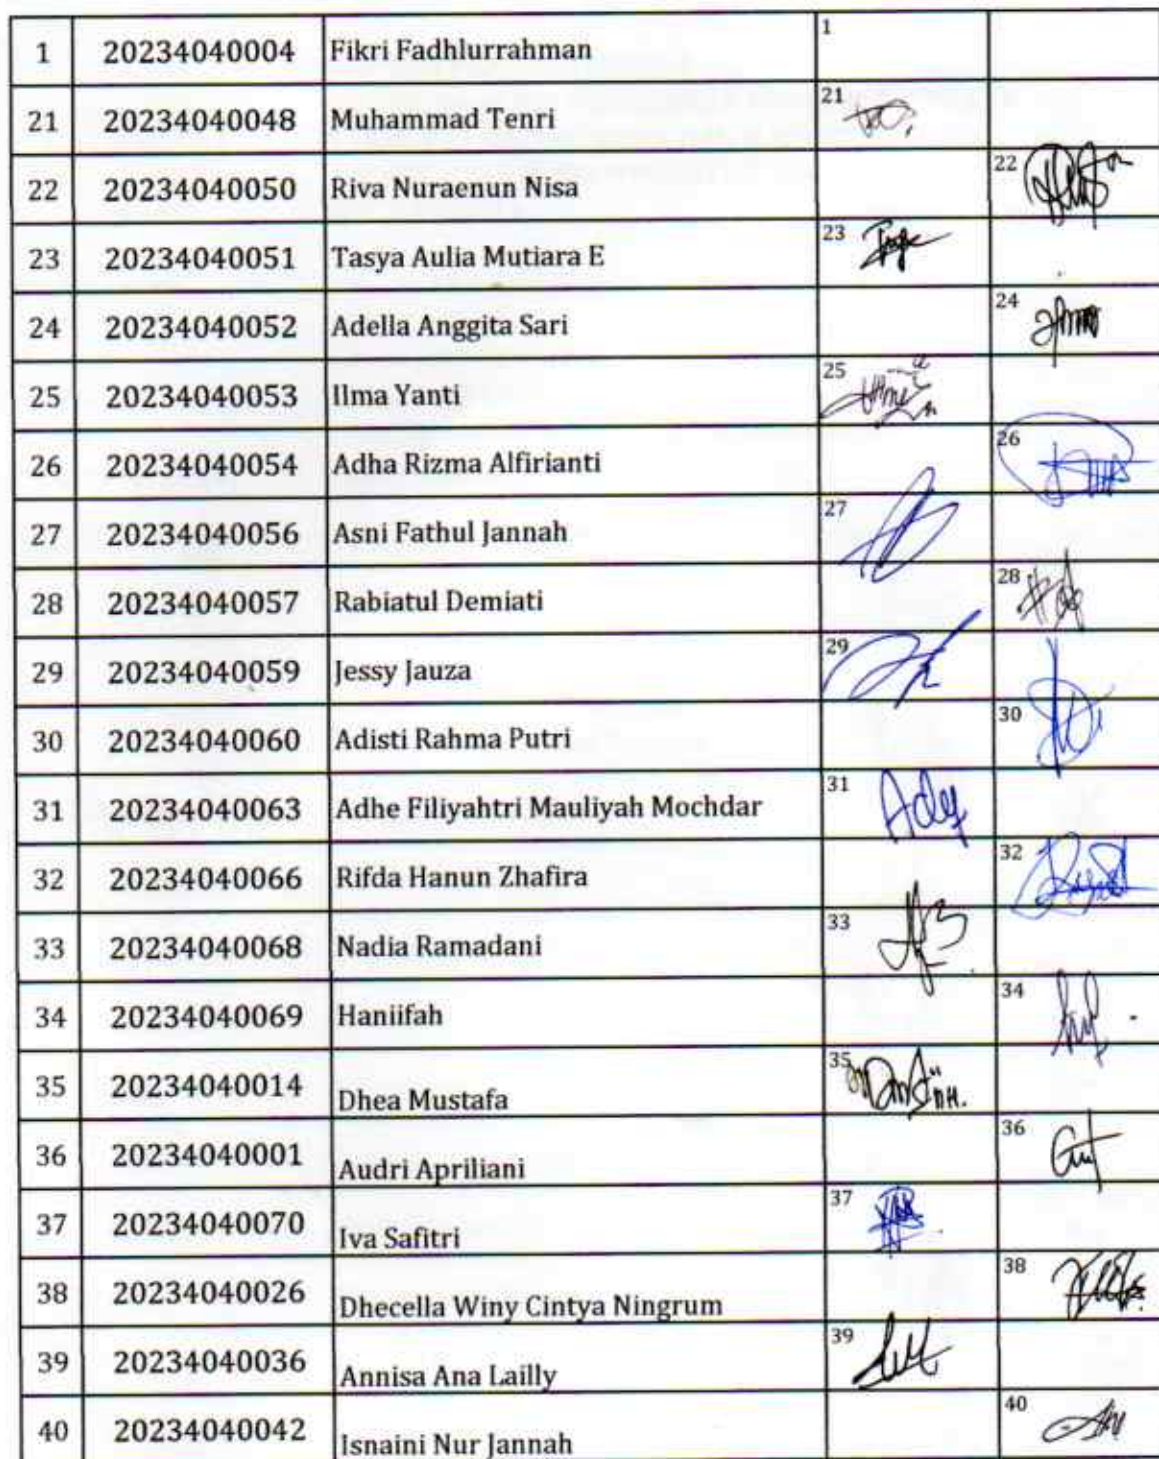 1 20234040004 Fikri Fadhlurrahman 1
21 20234040048 Muhammad Tenri 21
22 20234040050 Riva Nuraenun Nisa 22
23 20234040051 Tasya Aulia Mutiara E 23
24 20234040052 Adella Anggita Sari 24
25 20234040053 Ilma Yanti 25
26 20234040054 Adha Rizma Alfirianti 26
27 20234040056 Asni Fathul Jannah 27
28 20234040057 Rabiatul Demiati 28
29 20234040059 Jessy Jauza 29
30 20234040060 Adisti Rahma Putri 30
31 20234040063 Adhe Filiyahtri Mauliyah Mochdar 31
32 20234040066 Rifda Hanun Zhafira 32
33 20234040068 Nadia Ramadani 33
34 20234040069 Haniifah 34
35 20234040014 Dhea Mustafa 35
36 20234040001 Audri Apriliani 36
37 20234040070 Iva Safitri 37
38 20234040026 Dhecella Winy Cintya Ningrum 38
39 20234040036 Annisa Ana Lailly 39
40 20234040042 Isnaini Nur Jannah 40